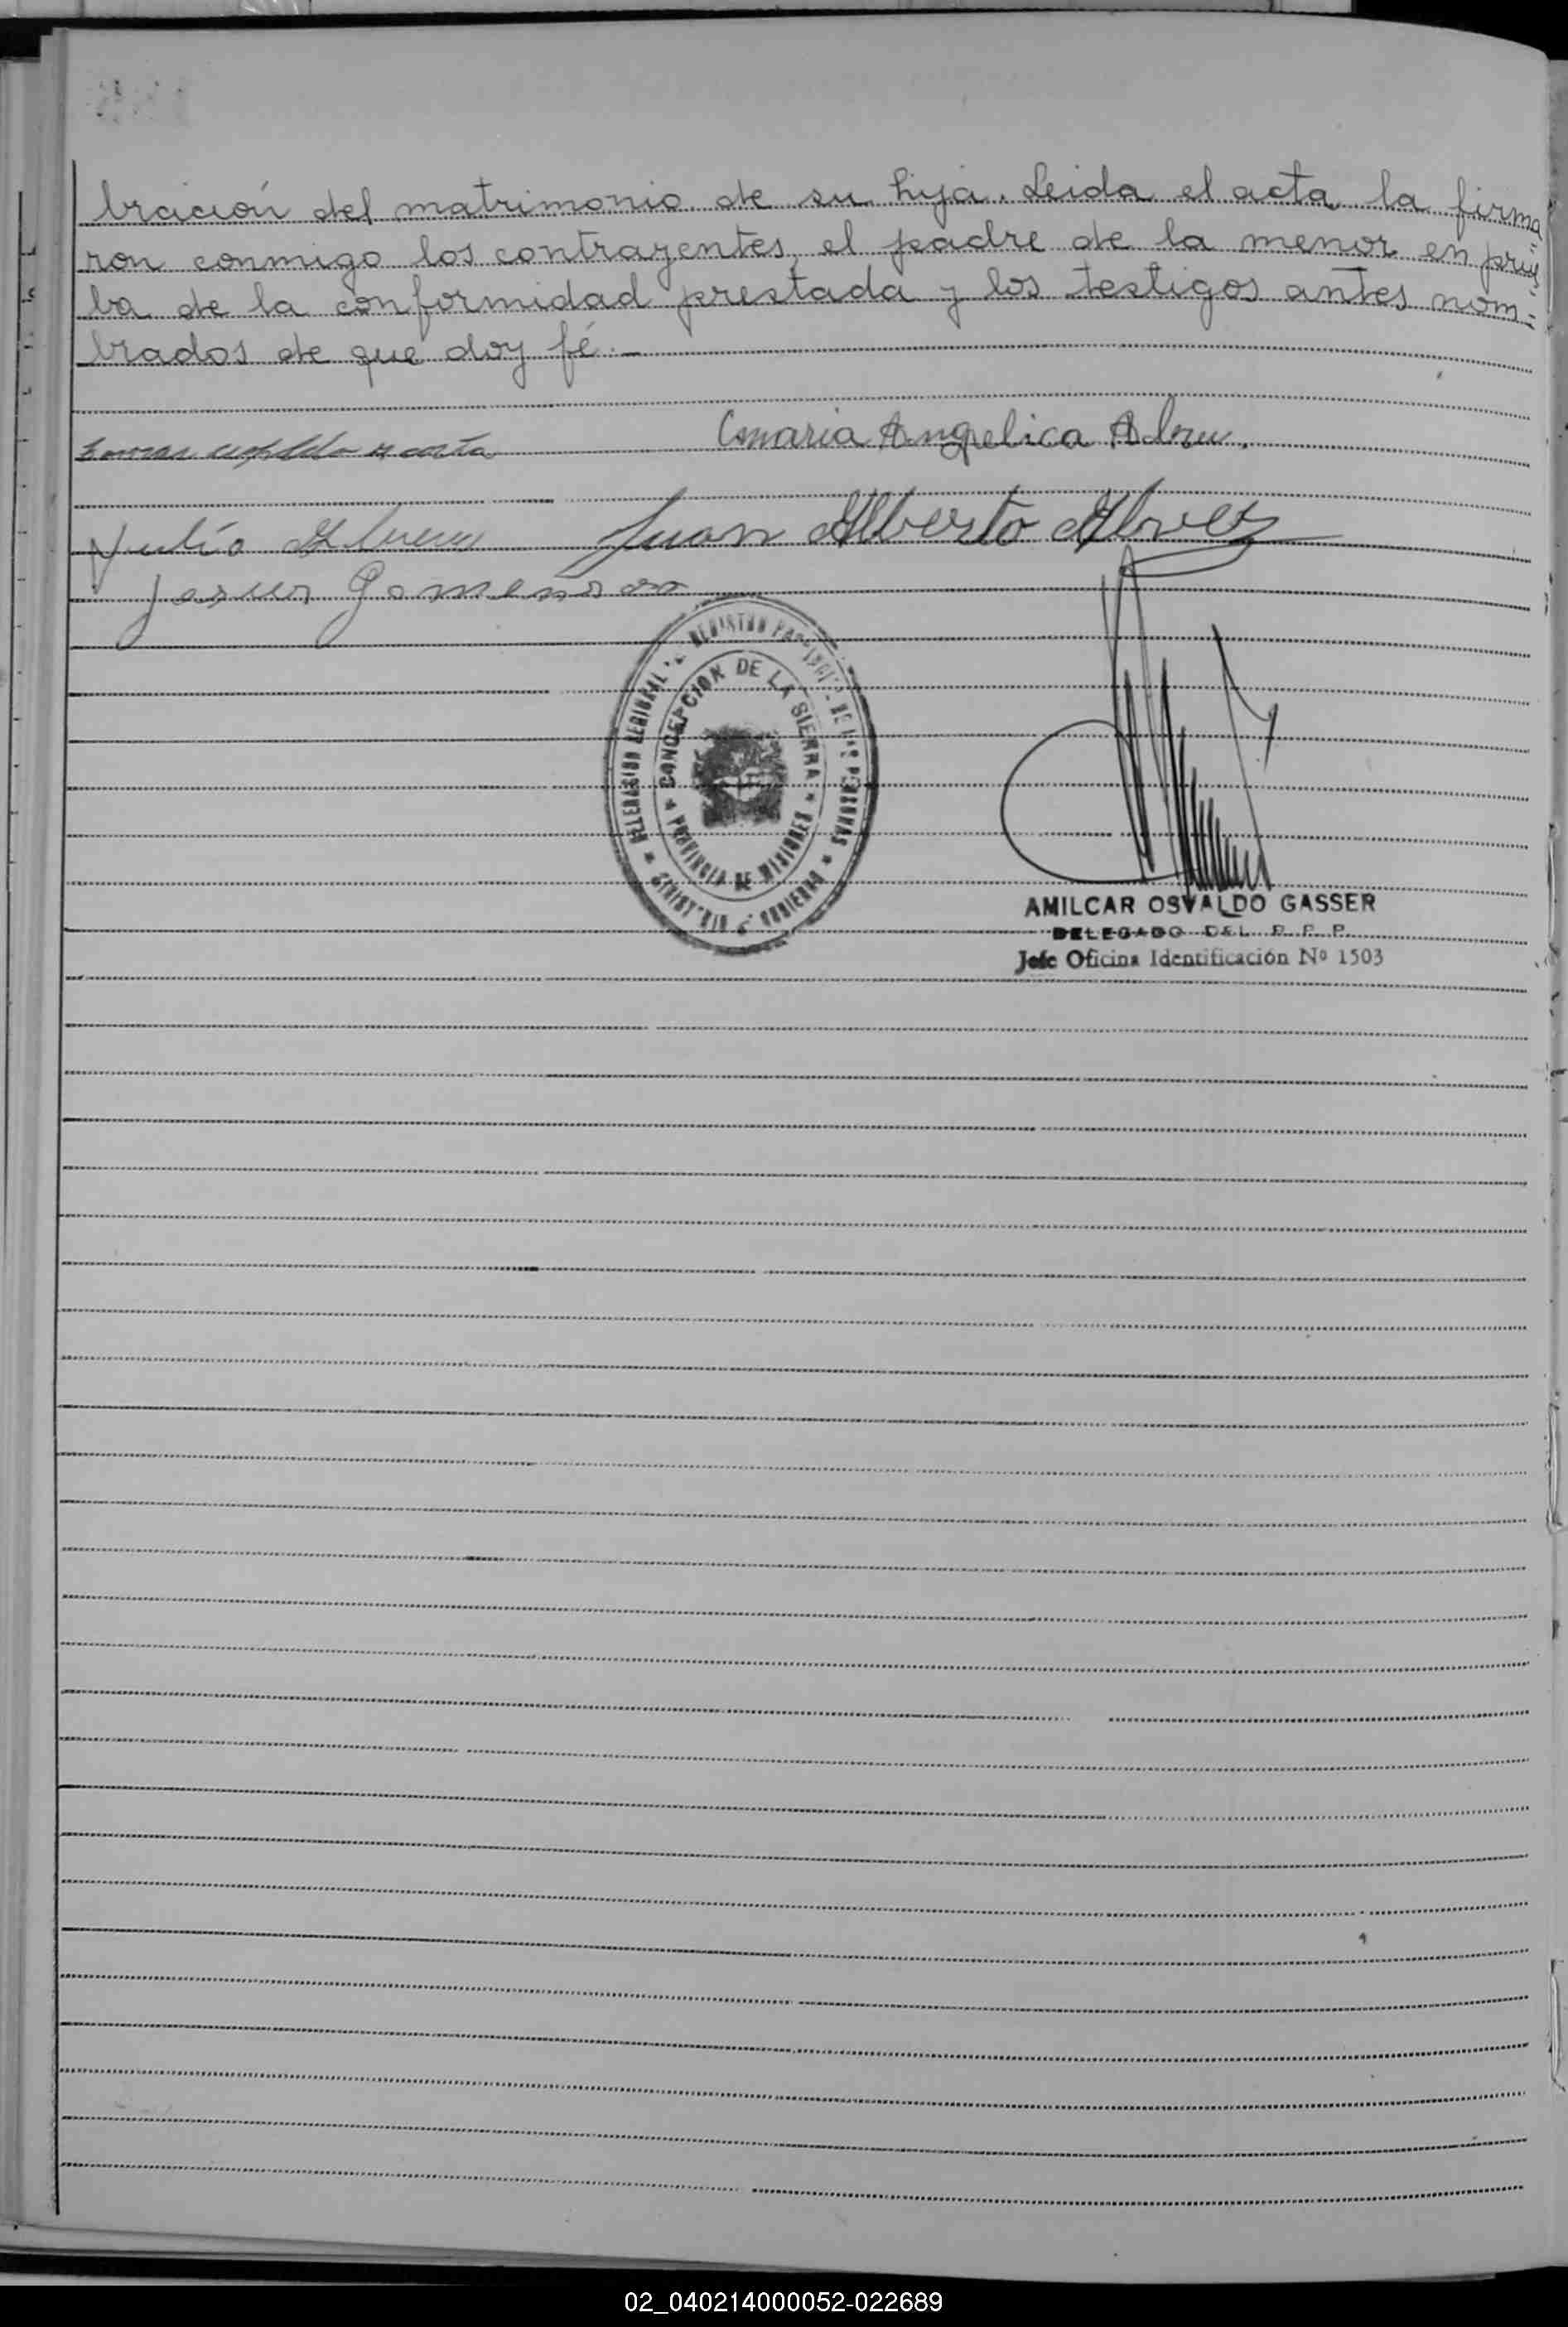 bración del matrimonio de su hija. Leida el acta la firma
ron conmigo los contrayentes, el padre de la menor en prue
ba de la conformidad prestada y los testigos antes nom=
brados de que doy fé.—
Maria Angelica Abreu.
Julio Juan Alberto Alvez
Jesus
DELEGACION REGIONAL REGISTRO DE LAS PERSONAS
CONCEPCION DE LA SIERRA
PROVINCIA DE MISIONES
AMILCAR OSVALDO GASSER
DELEGADO DEL R. P. P.
Jefe Oficina Identificación Nº 1503
02_040214000052-022689